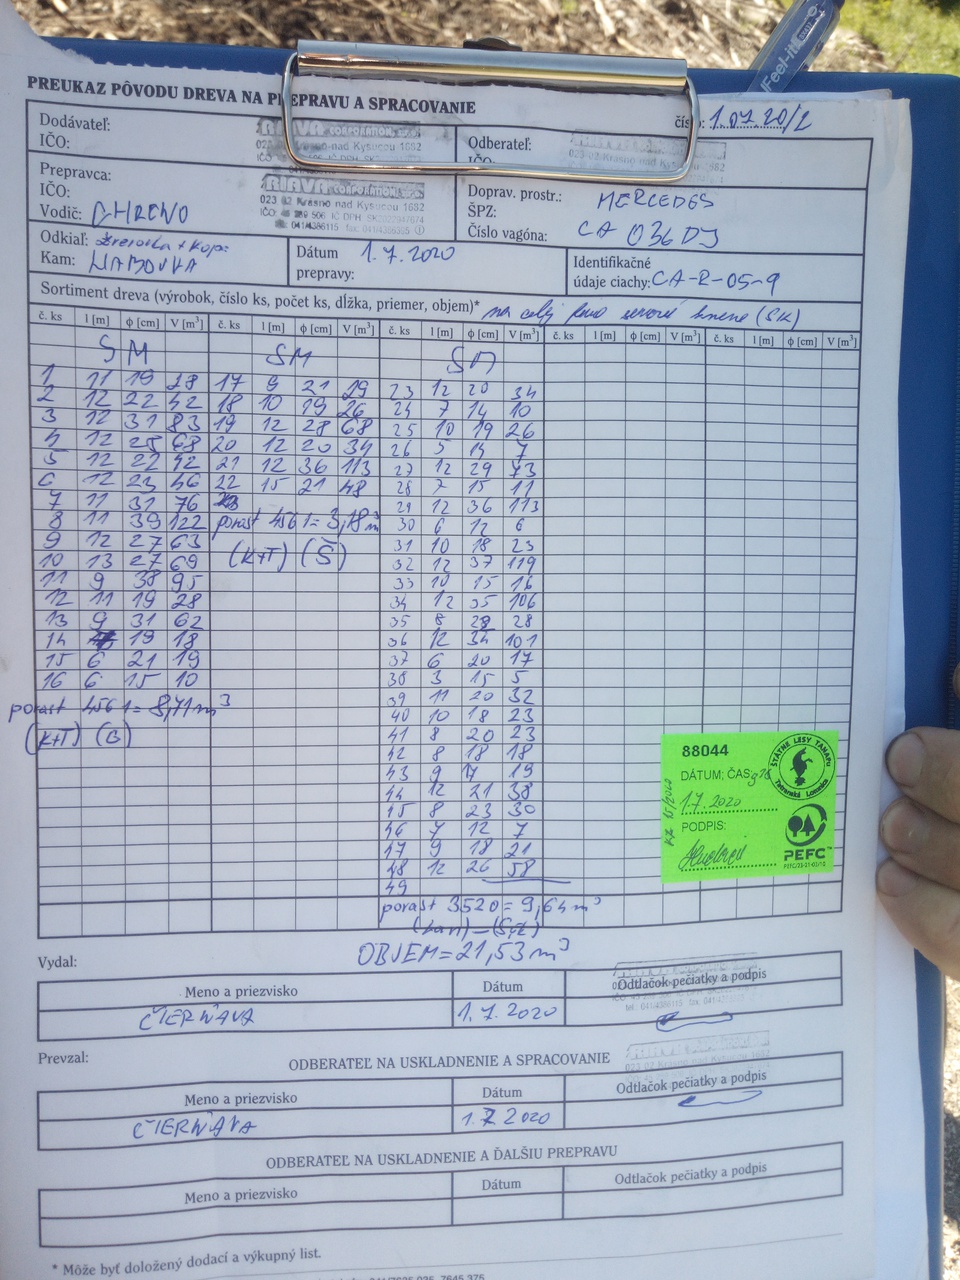 PREUKAZ PÔVODU DREVA NA PREPRAVU A SPRACOVANIE
číslo: 1.07.20/2
Dodávateľ:
IČO:
RIAVA CORPORATION, s.r.o.
nad Kysucou 1682
Odberateľ:
023 02 Krásno nad Kysucou 1682
Prepravca:
IČO:
Vodič: CHRENO
RIAVA CORPORATION, s.r.o.
023 02 Krásno nad Kysucou 1682
Doprav. prostr.: MERCEDES
ŠPZ:
Číslo vagóna: CA 036DJ
Odkiaľ:
Kam: HABOVKA
Dátum prepravy: 1.7.2020
Identifikačné
údaje ciachy: CA-R-05-9
Sortiment dreva (výrobok, číslo ks, počet ks, dĺžka, priemer, objem)*
č. ks l [m] ϕ [cm] V [m³] č. ks l [m] ϕ [cm] V [m³] č. ks l [m] ϕ [cm] V [m³] č. ks l [m] ϕ [cm] V [m³] č. ks l [m] ϕ [cm] V [m³]
SM SM SM
1 11 19 28 17 9 21 29 23 12 20 34
2 12 22 42 18 10 19 26 24 7 14 10
3 12 31 83 19 12 28 68 25 10 19 26
4 12 28 68 20 12 20 34 26 5 14 7
5 12 22 42 21 12 36 113 27 12 29 73
6 12 23 46 22 15 21 48 28 7 15 11
7 11 31 76 29 12 36 113
8 11 39 122 porast 456 1 = 3,18 m³ 30 6 12 6
9 12 27 63 31 10 18 23
10 13 27 69 (K+T) (Š) 32 12 37 119
11 9 38 95 33 10 15 16
12 11 19 28 34 12 35 106
13 9 31 62 35 8 28 28
14 19 18 36 12 34 101
15 6 21 19 37 6 20 17
16 6 15 10 38 3 15 5
porast 456 1 = 8,71 m³ 39 11 20 32
(K+T) (G) 40 10 18 23
41 8 20 23
42 8 18 18
43 9 17 19
44 12 21 38
45 8 23 30
46 7 12 7
47 9 18 21
48 12 26 58
49
porast 3520 = 9,64 m³
OBJEM = 21,53 m³
88044
DÁTUM: ČAS:
1.7.2020
PODPIS:
ŠTÁTNE LESY TANAPU
Tatranská Lomnica
PEFC™
Vydal:
Meno a priezvisko Dátum Odtlačok pečiatky a podpis
ČIERŇAVA 1.7.2020
Prevzal:
ODBERATEĽ NA USKLADNENIE A SPRACOVANIE
Meno a priezvisko Dátum Odtlačok pečiatky a podpis
ČIERŇAVA 1.7.2020
ODBERATEĽ NA USKLADNENIE A ĎALŠIU PREPRAVU
Meno a priezvisko Dátum Odtlačok pečiatky a podpis
* Môže byť doložený dodací a výkupný list.